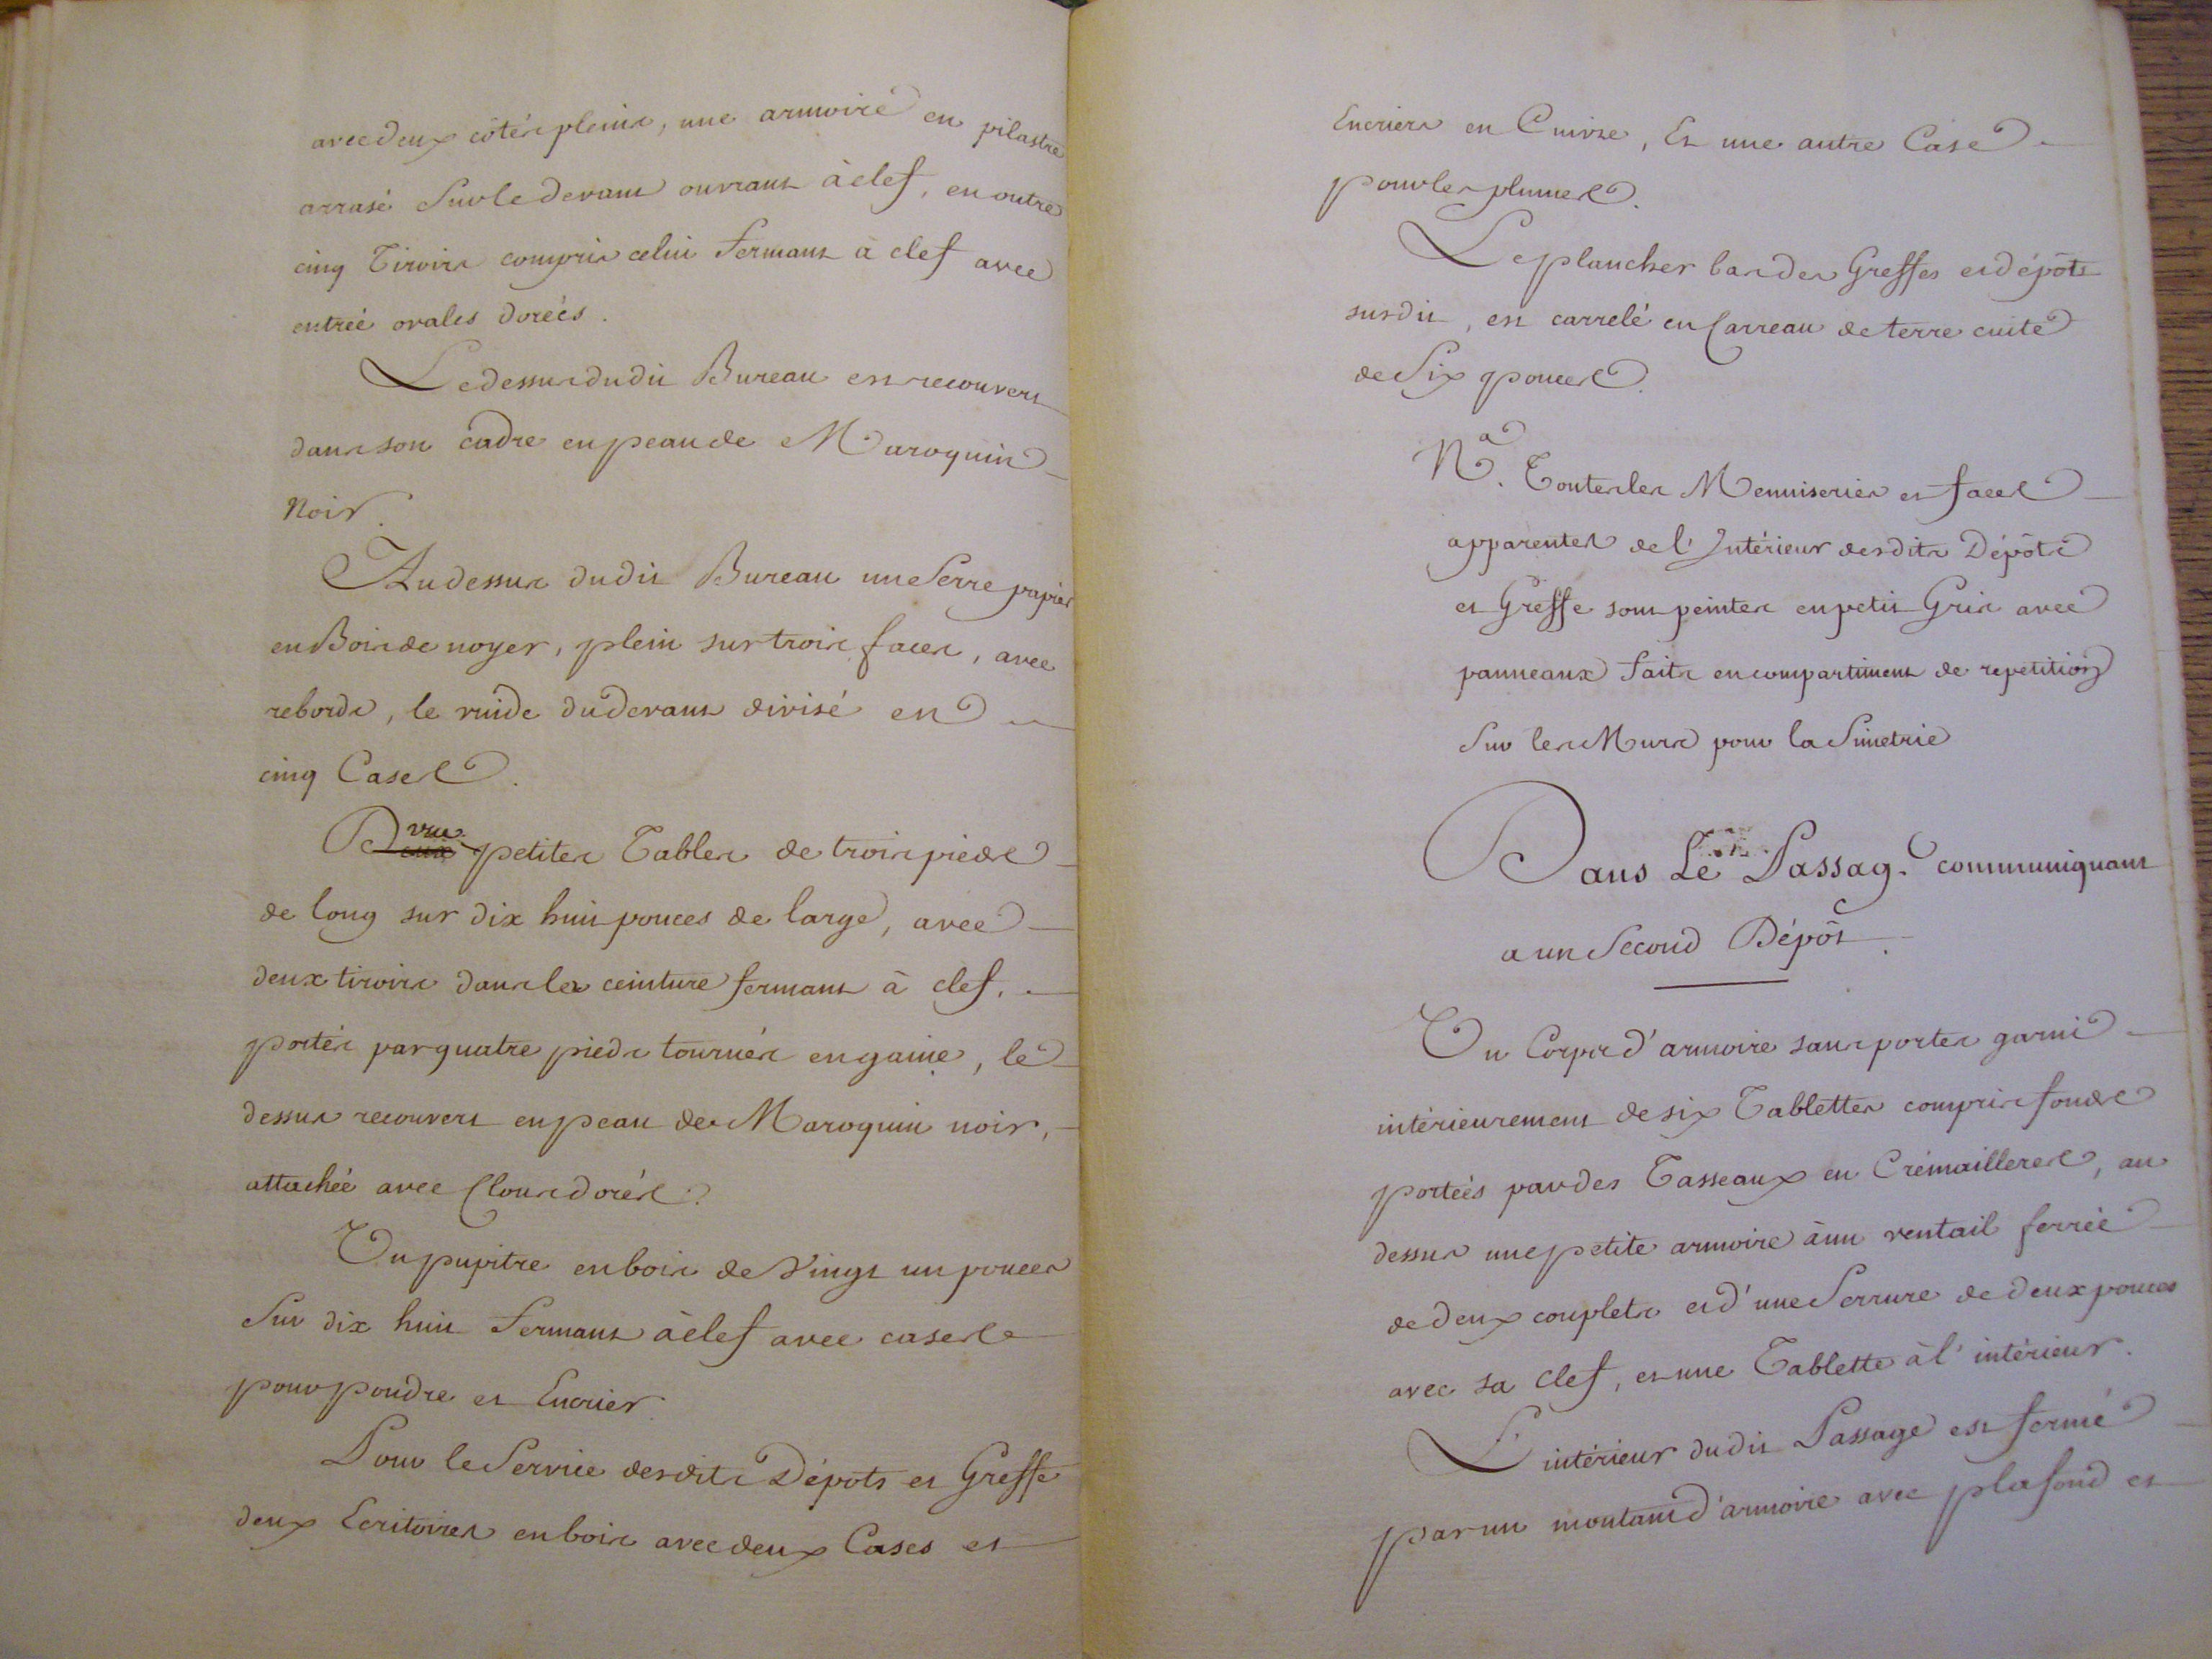 avec deux côtés pleins, une armoire en pilastre
arrasé Sur le devant ouvrant à clef, en outre
cinq Tiroirs compris celui fermant à clef avec
entreé ovales doreés.
Le dessus dudit Bureau est recouvert
dans son cadre en peau de Maroquin
Noir.
Au dessus dudit Bureau une Serre papier
en Bois de noyer, plein sur trois faces, avec
rebords, le vuide du devant divisé en
cinq Cases.
une
Deux petites Tables de trois pieds
de long sur dix huit pouces de large, avec
deux tiroirs dans la ceinture fermant à clef,
portés par quatre pieds tournés en gaine, le
dessus recouvert en peau de Maroquin noir,
attachéé avec Clous dorés.
Un pupitre en bois de Vingt un pouces
Sur dix huit fermant à clef avec cases
pour poudre et Encrier.
Pour le Service desdits Dépots et Greffe
deux Ecritoires en bois avec deux Cases et
Encriers en Cuivre, Et une autre Case
pour les plumes.
Le plancher bas des Greffes et dépôts
susdit, est carrelé en Carreau de terre cuite
de Six pouces.
Nª. Toutes les Menuiseries et faces
apparentes de l'Intérieur desdits Dépôts
et Greffe sont peintes en petit Gris avec
panneaux faits en compartiment de repetition
Sur les Murs pour la Simetrie
Dans Le Passag.e communiquant
a un Second Dépôt.
Un Corps d'armoire sans portes garni
intérieurement de six Tablettes compris fonds
porteés par des Tasseaux en Crémailleres, au
dessus une petite armoire à un ventail ferreé
de deux couplets et d'une Serrure de deux pouces
avec sa Clef, et une Tablette à l'intérieur.
L'intérieur dudit Passage est fermé
par un montant d'armoire avec plafond et